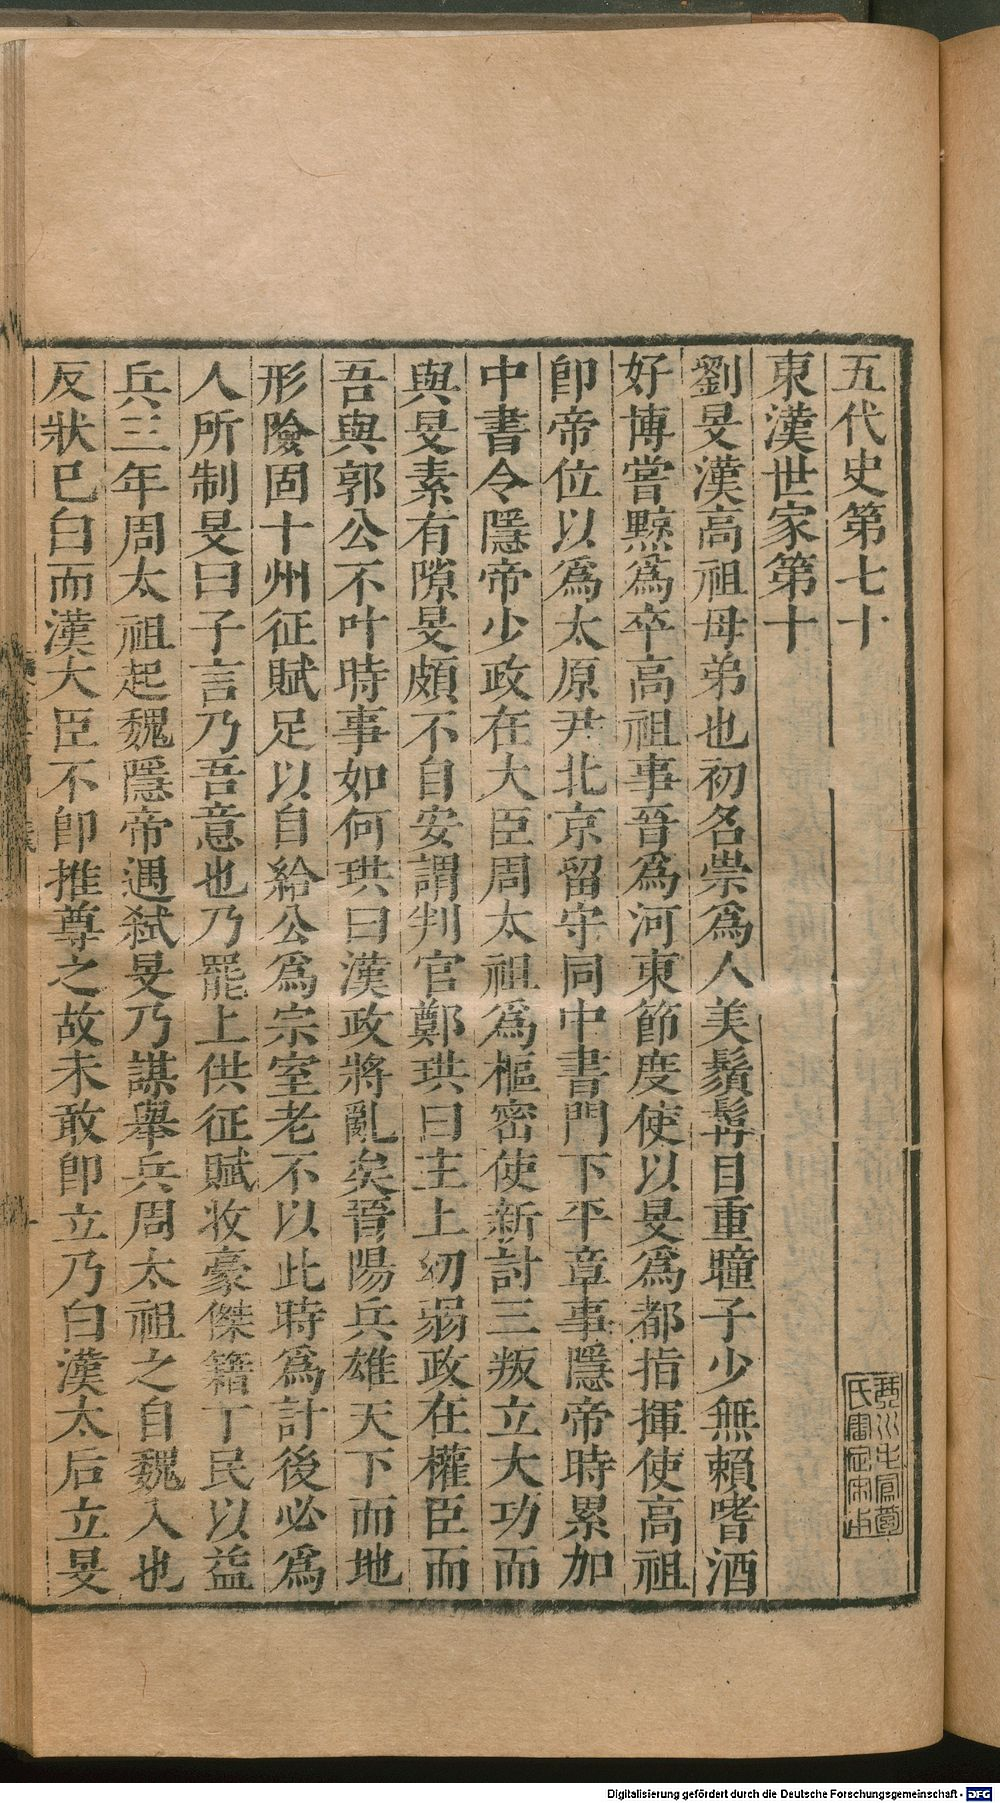 五代史第七十
東漢世家第十
劉旻漢高祖母弟也初名崇爲人美鬚髯目重瞳子少無賴嗜酒
好博嘗黥爲卒高祖事晉爲河東節度使以旻爲都指揮使高祖
卽帝位以爲太原尹北京留守同中書門下平章事隱帝時累加
中書令隱帝少政在大臣周太祖爲樞密使新討三叛立大功而
與旻素有隙旻頗不自安謂判官鄭珙曰主上幼弱政在權臣而
吾與郭公不叶時事如何珙曰漢政將亂矣晉陽兵雄天下而地
形險固十州征賦足以自給公爲宗室老不以此時爲計後必爲
人所制旻曰子言乃吾意也乃罷上供征賦收豪傑籍丁民以益
兵三年周太祖起魏隱帝遇弑旻乃謀舉兵周太祖之自魏入也
反狀已白而漢大臣不卽推尊之故未敢卽立乃白漢太后立旻
琴川毛鳳苞
氏審定宋本
Digitalisierung gefördert durch die Deutsche Forschungsgemeinschaft - DFG